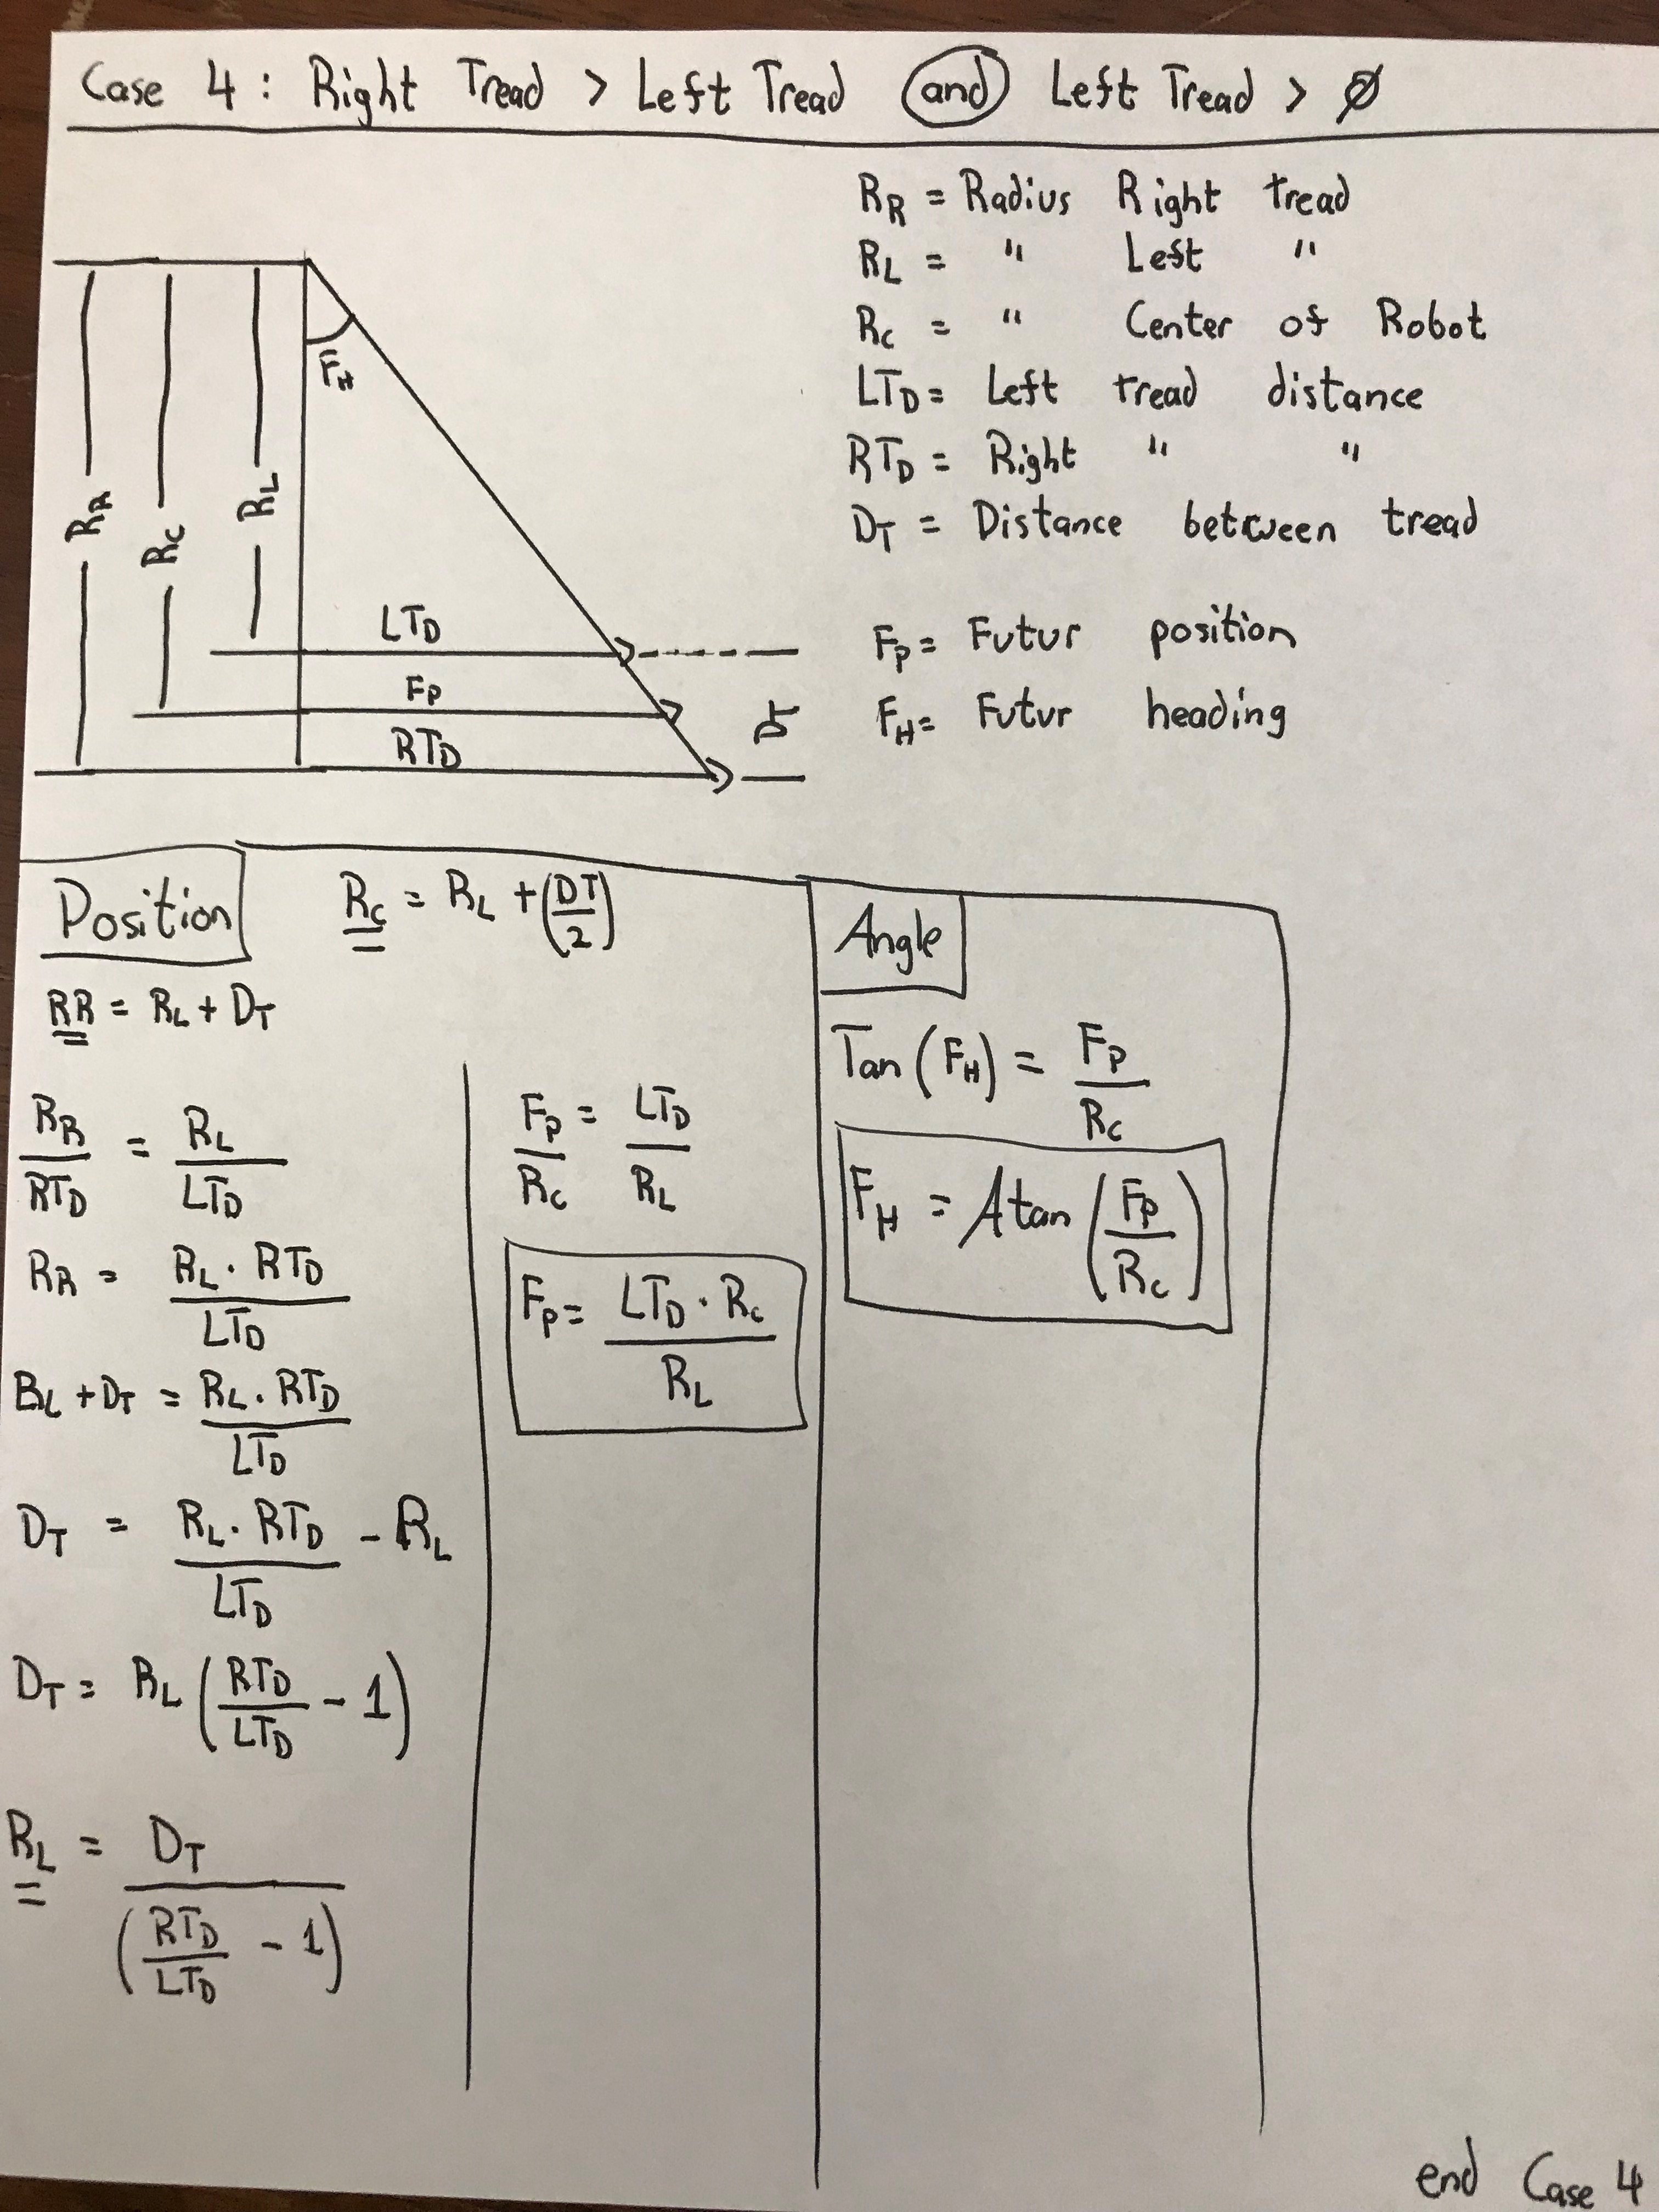 Case 4 : Right Tread > Left Tread and Left Tread > Ø
R_R = Radius Right tread
R_L = " Left "
R_C = " Center of Robot
LT_D = Left tread distance
RT_D = Right " "
D_T = Distance between tread
F_P = Futur position
F_H = Futur heading
R_R
R_C
R_L
F_H
LT_D
F_P
RT_D
D_T
Position
R_C = R_L + (DT/2)
RR = R_L + D_T
R_R/RT_D = R_L/LT_D
R_R = R_L · RT_D / LT_D
R_L + D_T = R_L · RT_D / LT_D
D_T = R_L · RT_D / LT_D - R_L
D_T = R_L (RT_D/LT_D - 1)
R_L = D_T / (RT_D/LT_D - 1)
F_P/R_C = LT_D/R_L
F_P = LT_D · R_C / R_L
Angle
Tan (F_H) = F_P/R_C
F_H = Atan (F_P/R_C)
end Case 4